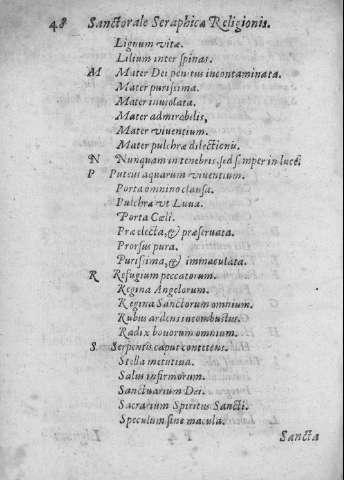 48 Sanctorale Seraphicæ Religionis.
Lignum vitæ.
Lilium inter spinas.
M Mater Dei penitus incontaminata.
Mater purissima.
Mater inuiolata.
Mater admirabilis,
Mater viuentium.
Mater pulchræ dilectionis.
N Nunquam in tenebris, sed semper in luce.
P Puteus aquarum viuentium.
Porta omnino clausa.
Pulchra vt Luna.
Porta Cœli.
Præelecta, & præseruata.
Prorsus pura.
Purissima, & immaculata.
R Refugium peccatorum.
Regina Angelorum.
Regina Sanctorum omnium.
Rubus ardens incombustus.
Radix bonorum omnium.
S Serpentis caput conterens.
Stella matutina.
Salus infirmorum.
Sanctuarium Dei.
Sacrarium Spiritus Sancti.
Speculum sine macula.
Sancta